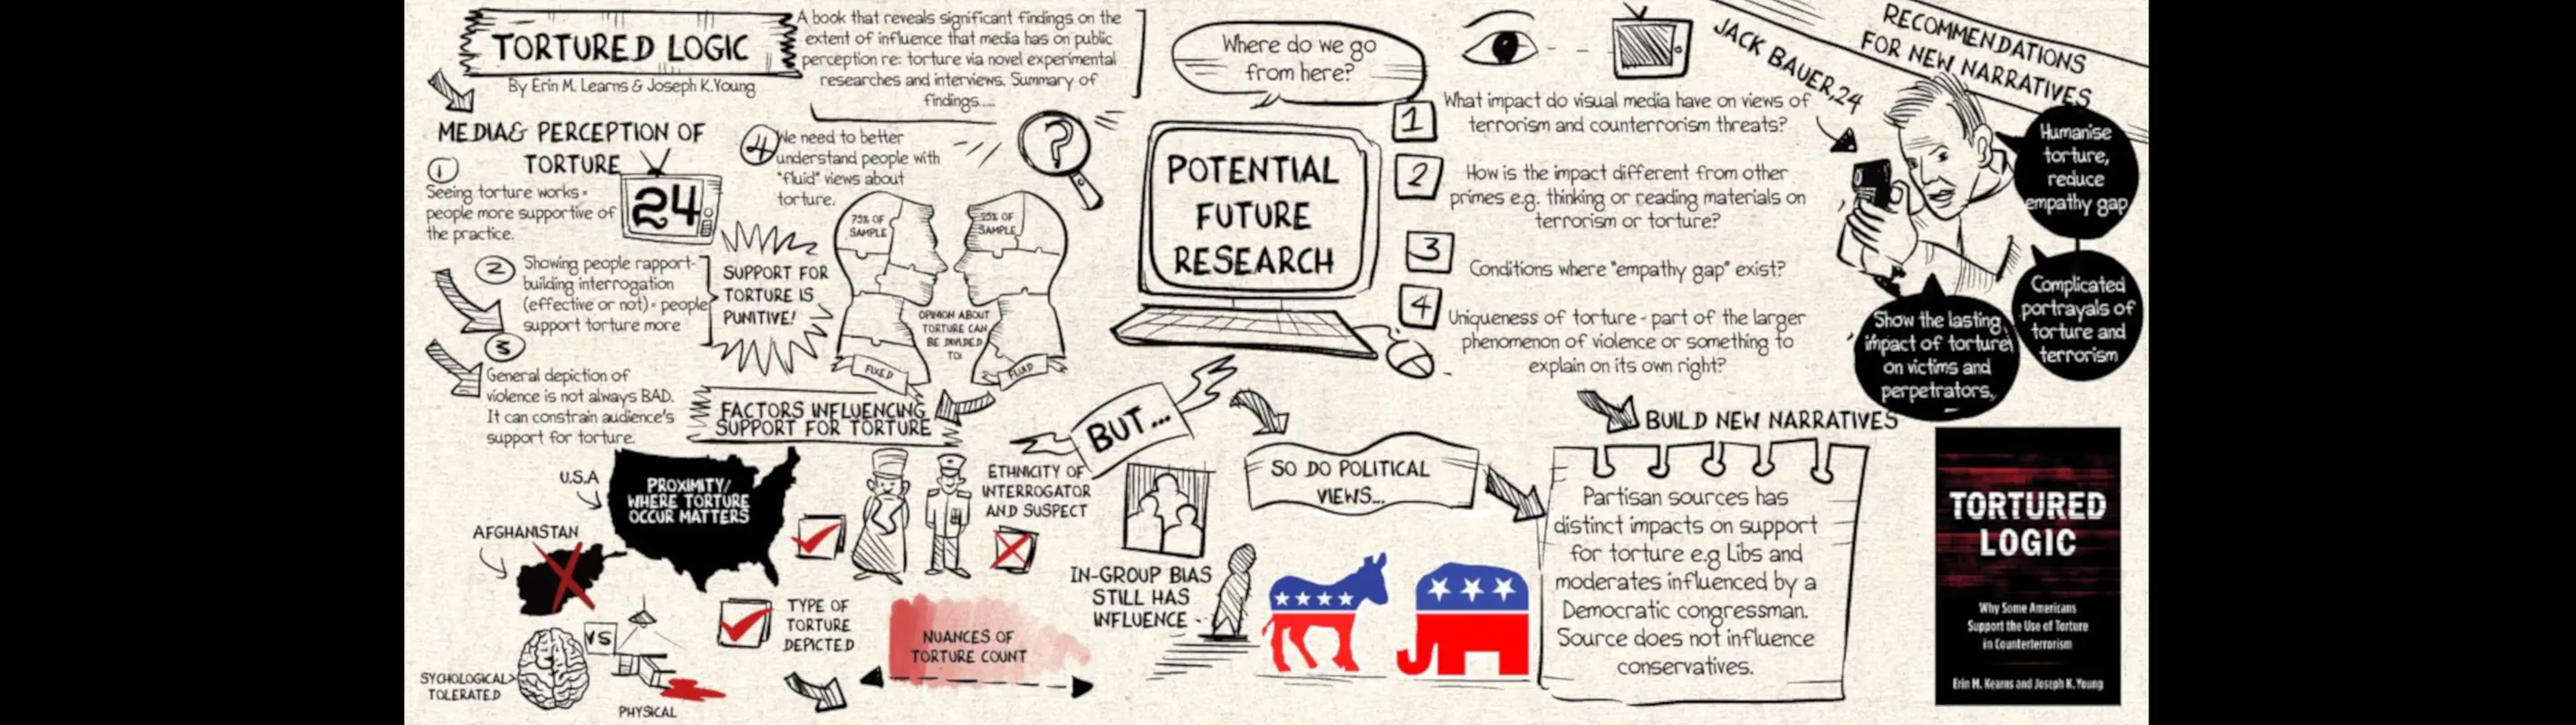 TORTURED LOGIC
By Erin M. Learns & Joseph K.Young
A book that reveals significant findings on the
extent of influence that media has on public
perception re: torture via novel experimental
researches and interviews. Summary of
findings....
MEDIA& PERCEPTION OF
TORTURE
1
Seeing torture works =
people more supportive of
the practice.
24
2
Showing people rapport-
building interrogation
(effective or not) = people
support torture more
SUPPORT FOR
TORTURE IS
PUNITIVE!
3
General depiction of
violence is not always BAD.
It can constrain audience's
support for torture.
4
We need to better
understand people with
"fluid" views about
torture.
?
75% OF
SAMPLE
25% OF
SAMPLE
OPINION ABOUT
TORTURE CAN
BE DIVIDED
TO:
FIXED
FLUID
FACTORS INFLUENCING
SUPPORT FOR TORTURE
U.S.A
PROXIMITY/
WHERE TORTURE
OCCUR MATTERS
AFGHANISTAN
ETHNICITY OF
INTERROGATOR
AND SUSPECT
VS
SYCHOLOGICAL>
TOLERATED
PHYSICAL
TYPE OF
TORTURE
DEPICTED
NUANCES OF
TORTURE COUNT
BUT...
IN-GROUP BIAS
STILL HAS
INFLUENCE
SO DO POLITICAL
VIEWS...
Where do we go
from here?
POTENTIAL
FUTURE
RESEARCH
1
What impact do visual media have on views of
terrorism and counterrorism threats?
2
How is the impact different from other
primes e.g. thinking or reading materials on
terrorism or torture?
3
Conditions where "empathy gap" exist?
4
Uniqueness of torture - part of the larger
phenomenon of violence or something to
explain on its own right?
BUILD NEW NARRATIVES
Partisan sources has
distinct impacts on support
for torture e.g Libs and
moderates influenced by a
Democratic congressman.
Source does not influence
conservatives.
RECOMMENDATIONS
FOR NEW NARRATIVES
JACK BAUER,24
Humanise
torture,
reduce
empathy gap
Complicated
portrayals of
torture and
terrorism
Show the lasting
impact of torture
on victims and
perpetrators,
TORTURED
LOGIC
Why Some Americans
Support the Use of Torture
in Counterterrorism
Erin M. Kearns and Joseph K. Young